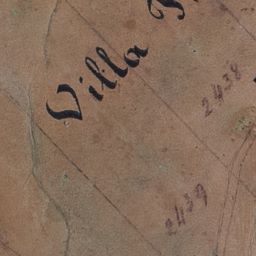 Villa
2438
2439